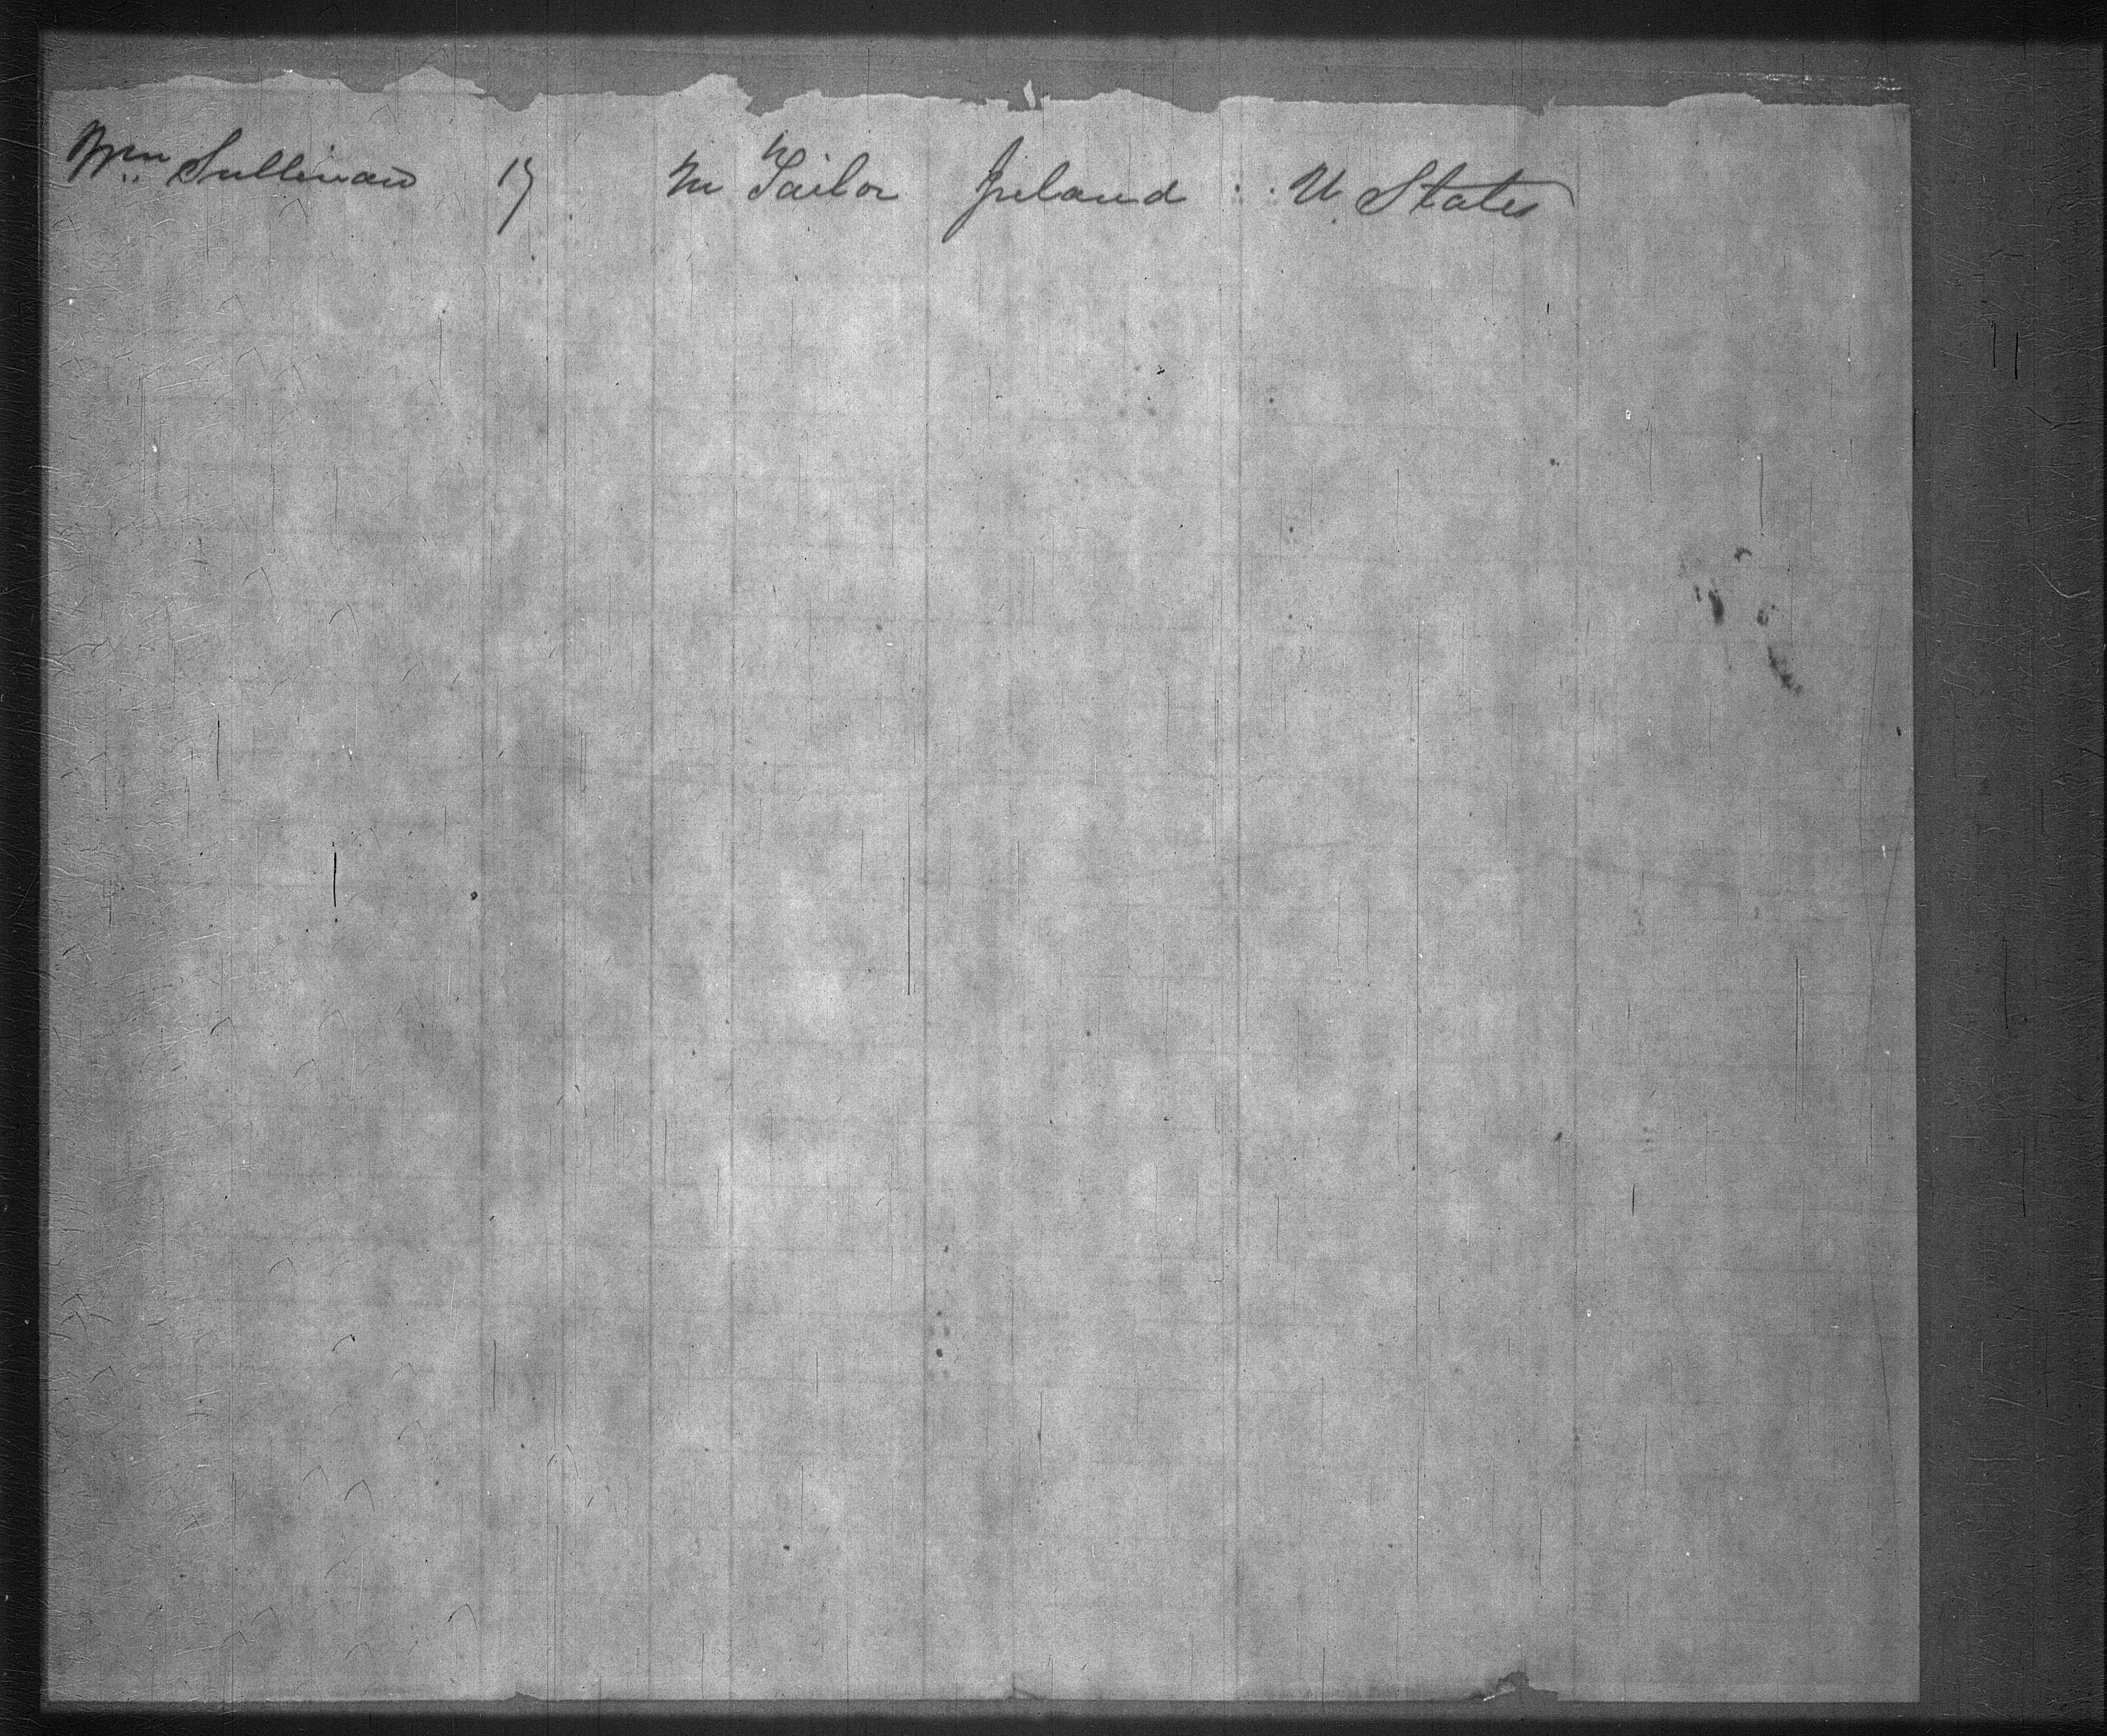 Wm Sullivan 17 M Tailor Ireland U. States